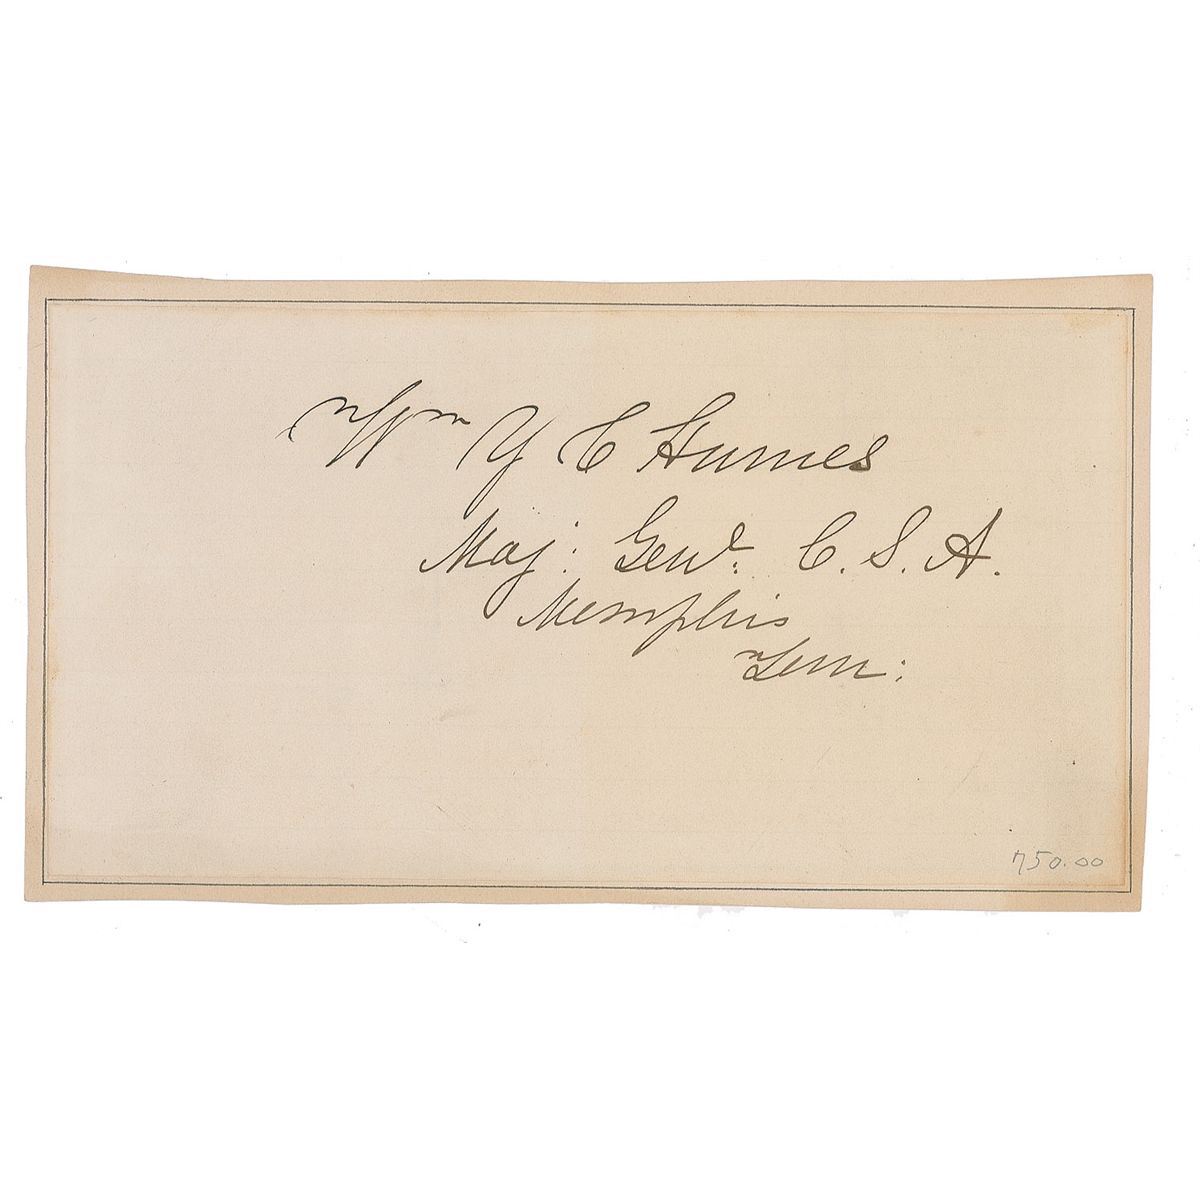 Wm Y C Humes
Maj: Genl. C. S. A.
Memphis
Tenn:
750.00